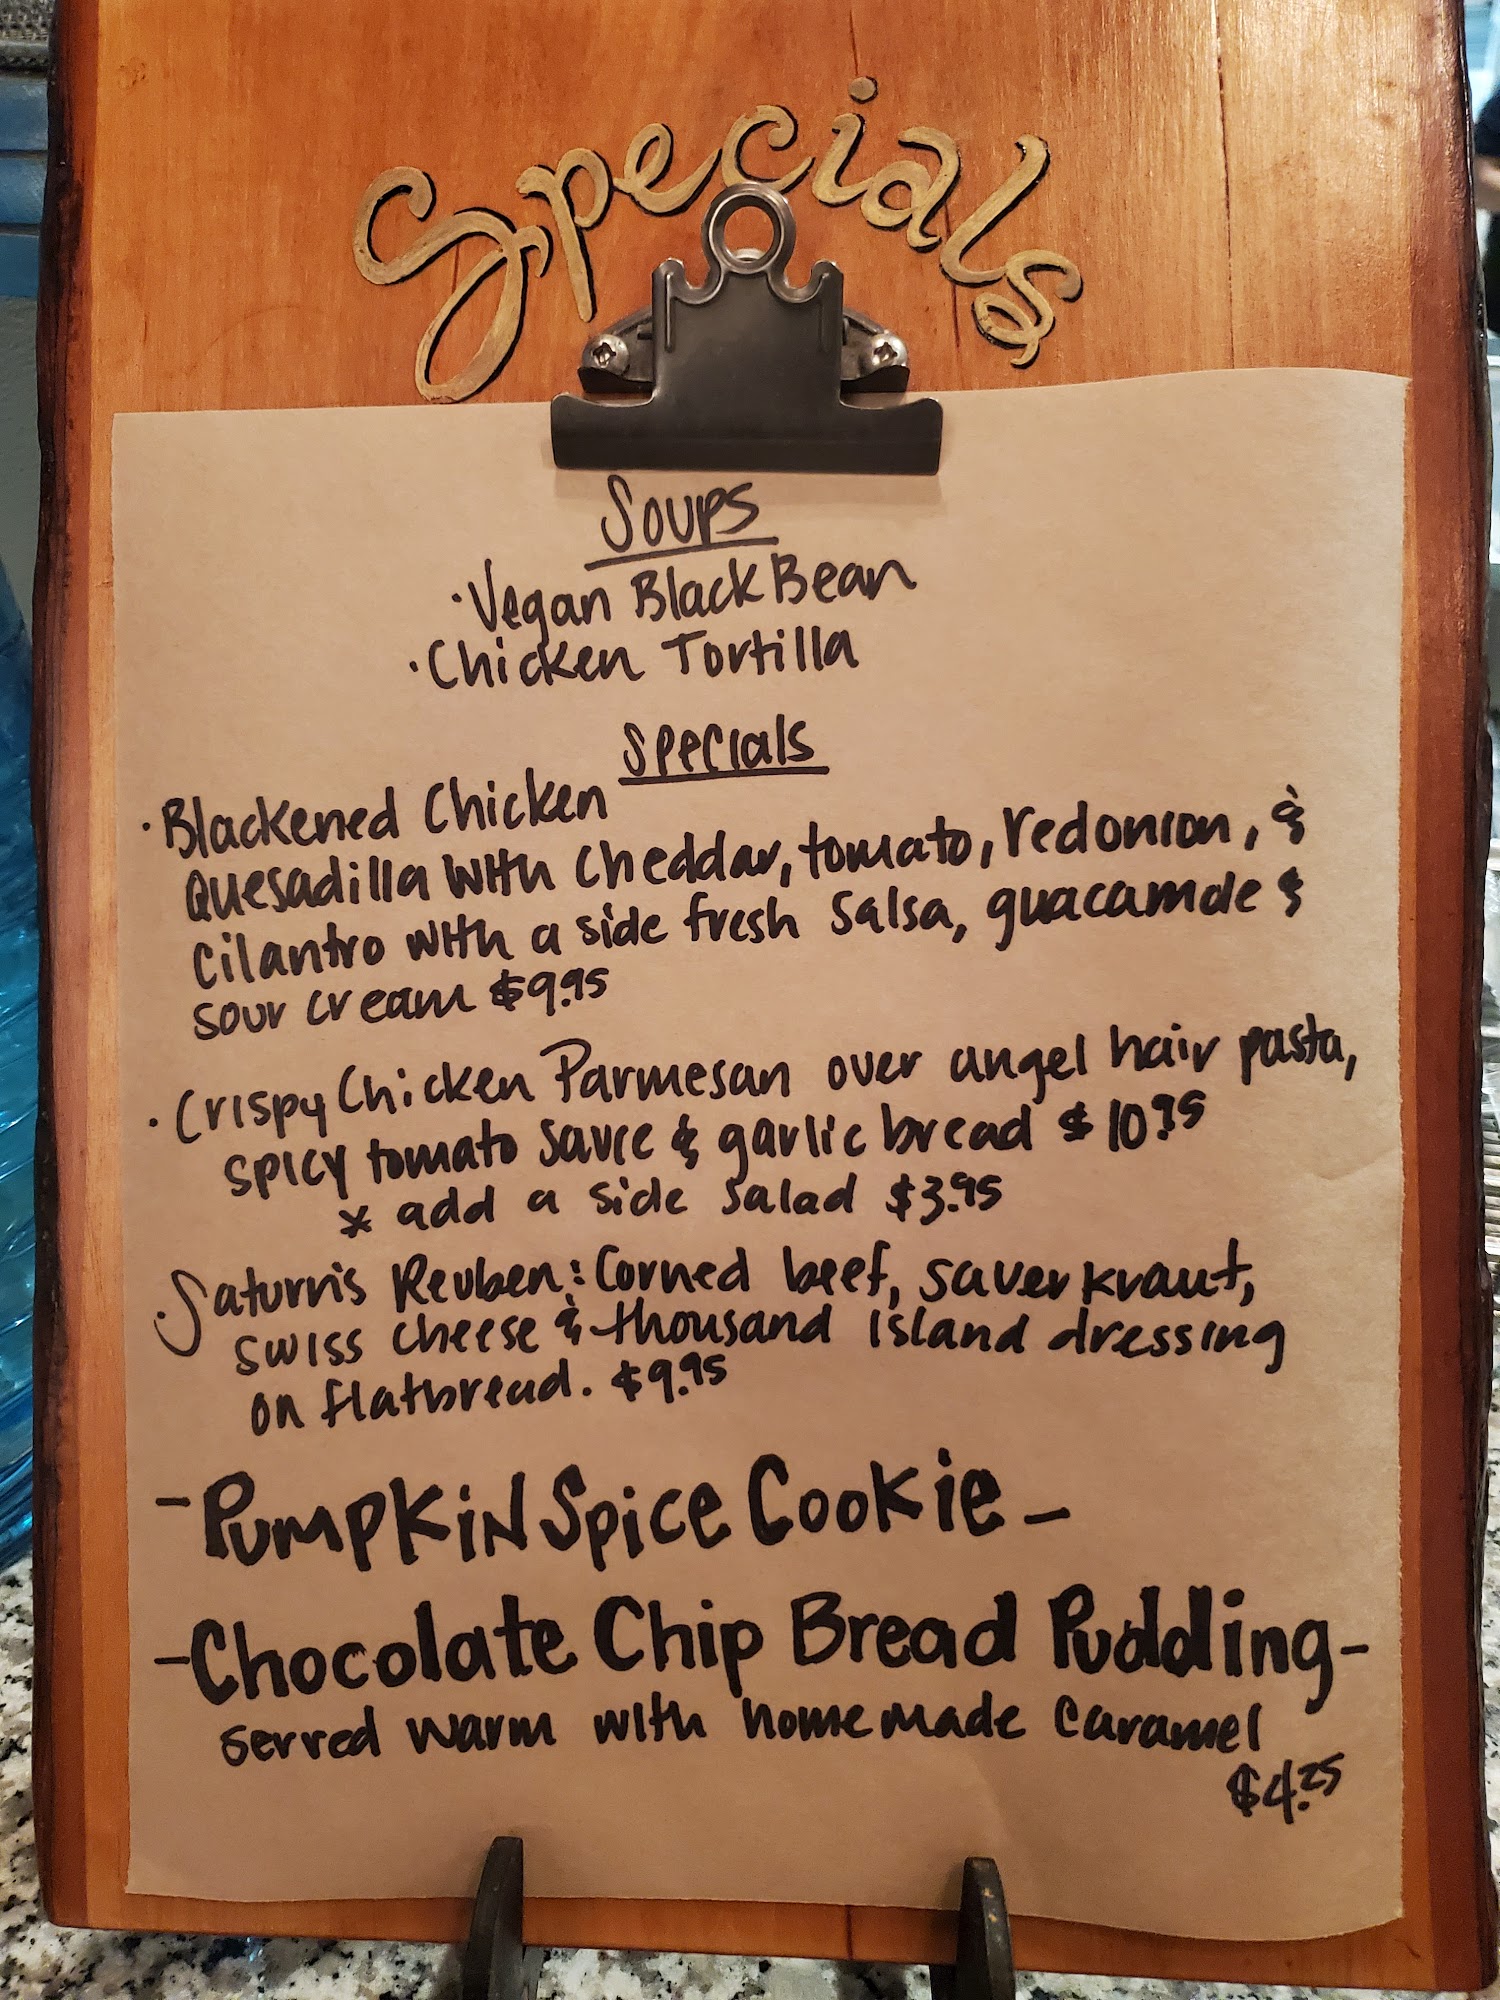 Specials
Soups
· Vegan Black Bean
· Chicken Tortilla
Specials
· Blackened Chicken
Quesadilla with Cheddar, tomato, red onion, &
Cilantro with a side fresh salsa, guacamole &
sour cream $9.95
· Crispy Chicken Parmesan over angel hair pasta,
spicy tomato sauce & garlic bread $10.95
* add a side salad $3.95
· Saturn's Reuben: Corned beef, sauerkraut,
swiss cheese & thousand island dressing
on flatbread. $9.95
- Pumpkin Spice Cookie -
- Chocolate Chip Bread Pudding -
served warm with homemade caramel
$4.25